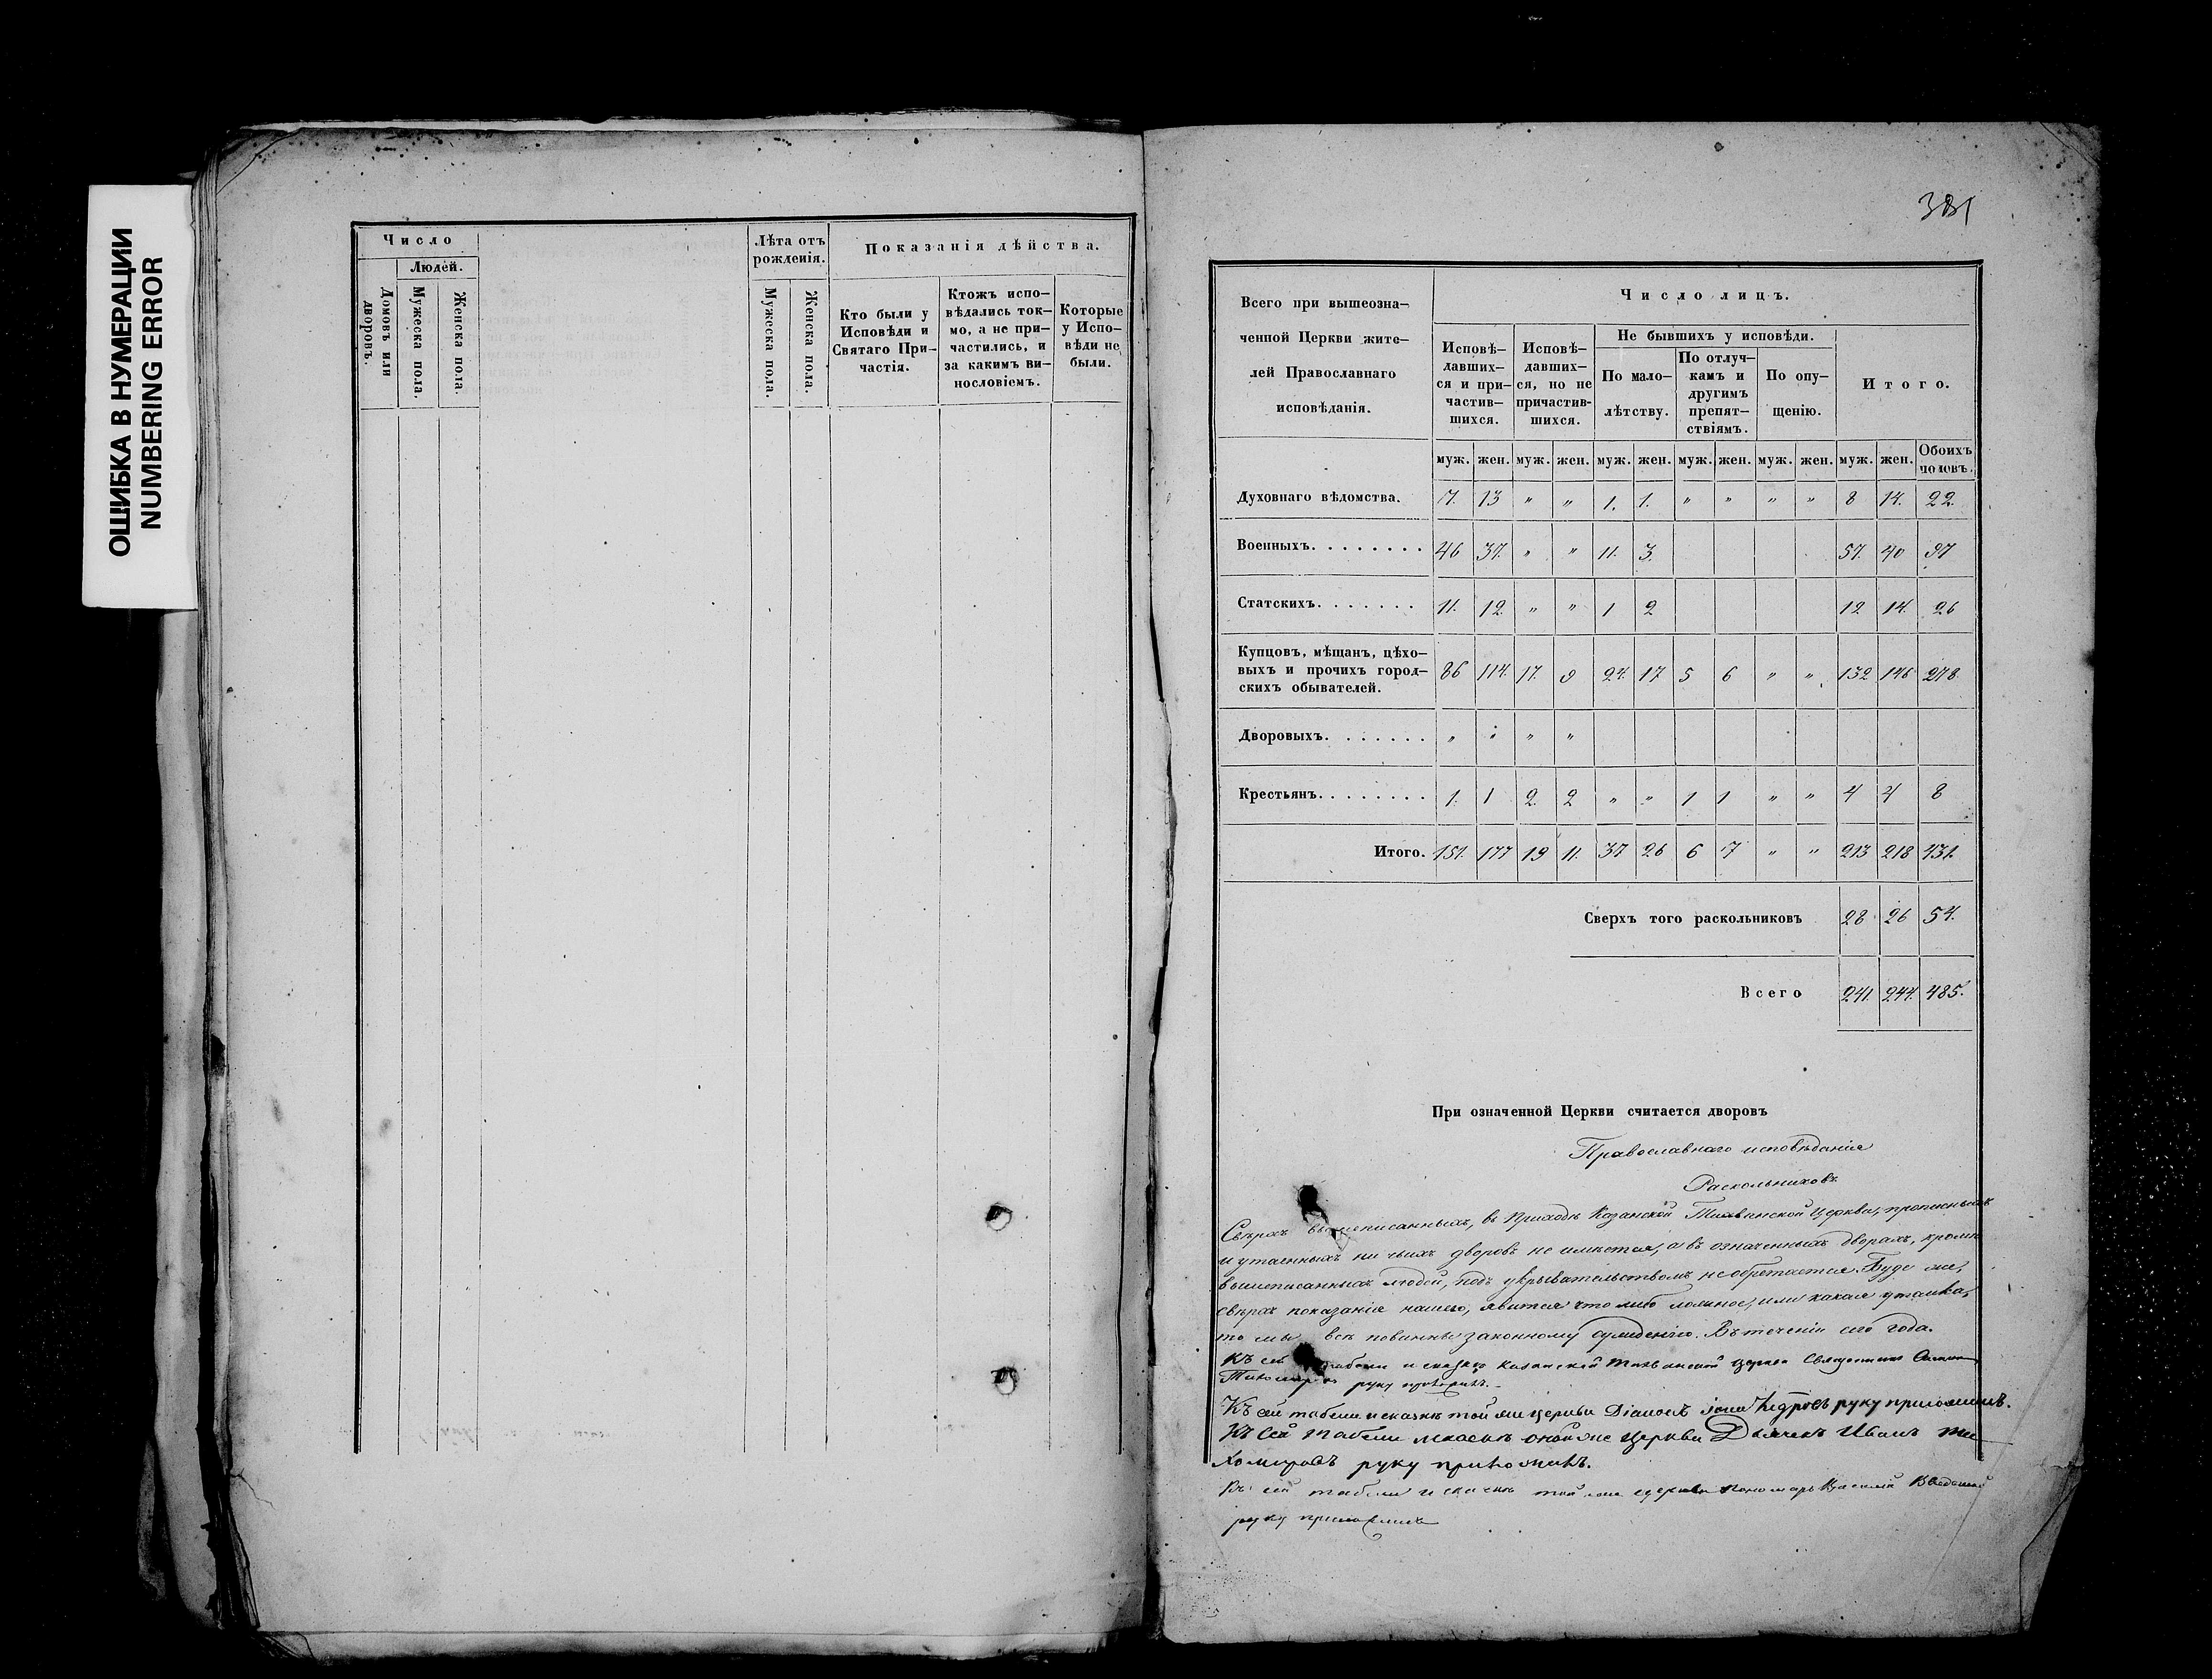 ОШИБКА В НУМЕРАЦИИ
NUMBERING ERROR
Число
Людей.
Домовъ или дворовъ.
Мужеска пола.
Женска пола.
Лѣта отъ
рожденія.
Мужеска пола.
Женска пола.
Показанія дѣйства.
Кто были у
Исповѣди и
Святаго При-
частія.
Ктожъ испо-
вѣдались ток-
мо, а не при-
частились, и
за какимъ ви-
нословіемъ.
Которые
у Испо-
вѣди не
были.
381
Всего при вышеозна-
ченной Церкви жите-
лей Православнаго
исповѣданія.
Число лицъ.
Исповѣ-
давших-
ся и при-
частив-
шихся.
Исповѣ-
давших-
ся, но не
причастив-
шихся.
Не бывшихъ у исповѣди.
По мало-
лѣтству.
По отлуч-
камъ и
другимъ
препят-
ствіямъ.
По опу-
щенію.
Итого.
муж. жен. муж. жен. муж. жен. муж. жен. муж. жен. муж. жен. Обоихъ половъ.
Духовнаго вѣдомства. 7. 13 " " 1. 1. " " " " 8 14. 22.
Военныхъ. . . . . . . . 46 37. " " 11. 3. 57. 40 97
Статскихъ. . . . . . . 11. 12 " " 1 2 12 14. 26
Купцовъ, мѣщанъ, цѣхо-
выхъ и прочихъ город-
скихъ обывателей. 86 114. 17. 9 24. 17 5 6 " " 132 146 278.
Дворовыхъ. . . . . . . " " " "
Крестьянъ. . . . . . . . 1. 1 2. 2 " " 1 1 " " 4 4 8
Итого. 151. 177 19 11. 37 26 6 7 " " 213 218 431.
Сверхъ того раскольниковъ 28 26 54.
Всего 241. 244. 485.
При означенной Церкви считается дворовъ
Православнаго исповѣданія
Раскольниковъ
Сверхъ вышеписанныхъ, въ приходѣ Казанской Тихвинской Церкви, прописныхъ
и утаенныхъ ни чьихъ дворовъ не имѣется, а въ означенныхъ дворахъ, кромѣ
вышеписанныхъ людей, подъ укрывательствомъ необретается. Буде же,
сверхъ показанія нашего, явится что либо ложное, или какая утайка,
то мы всѣ повинны законному сужденію. Въ теченіи сего года.
Къ сей табели и сказкѣ Казанской Тихвинской церкви Священникъ
Тихомировъ руку приложилъ.
Къ сей табели и сказкѣ той же церкви Діаконъ руку приложилъ.
Къ сей табели и оной же Церкви Дьячекъ Иванъ Ти-
хомировъ руку приложилъ.
Къ сей табели и сказкѣ той же церкви пономарь Василій
руку приложилъ